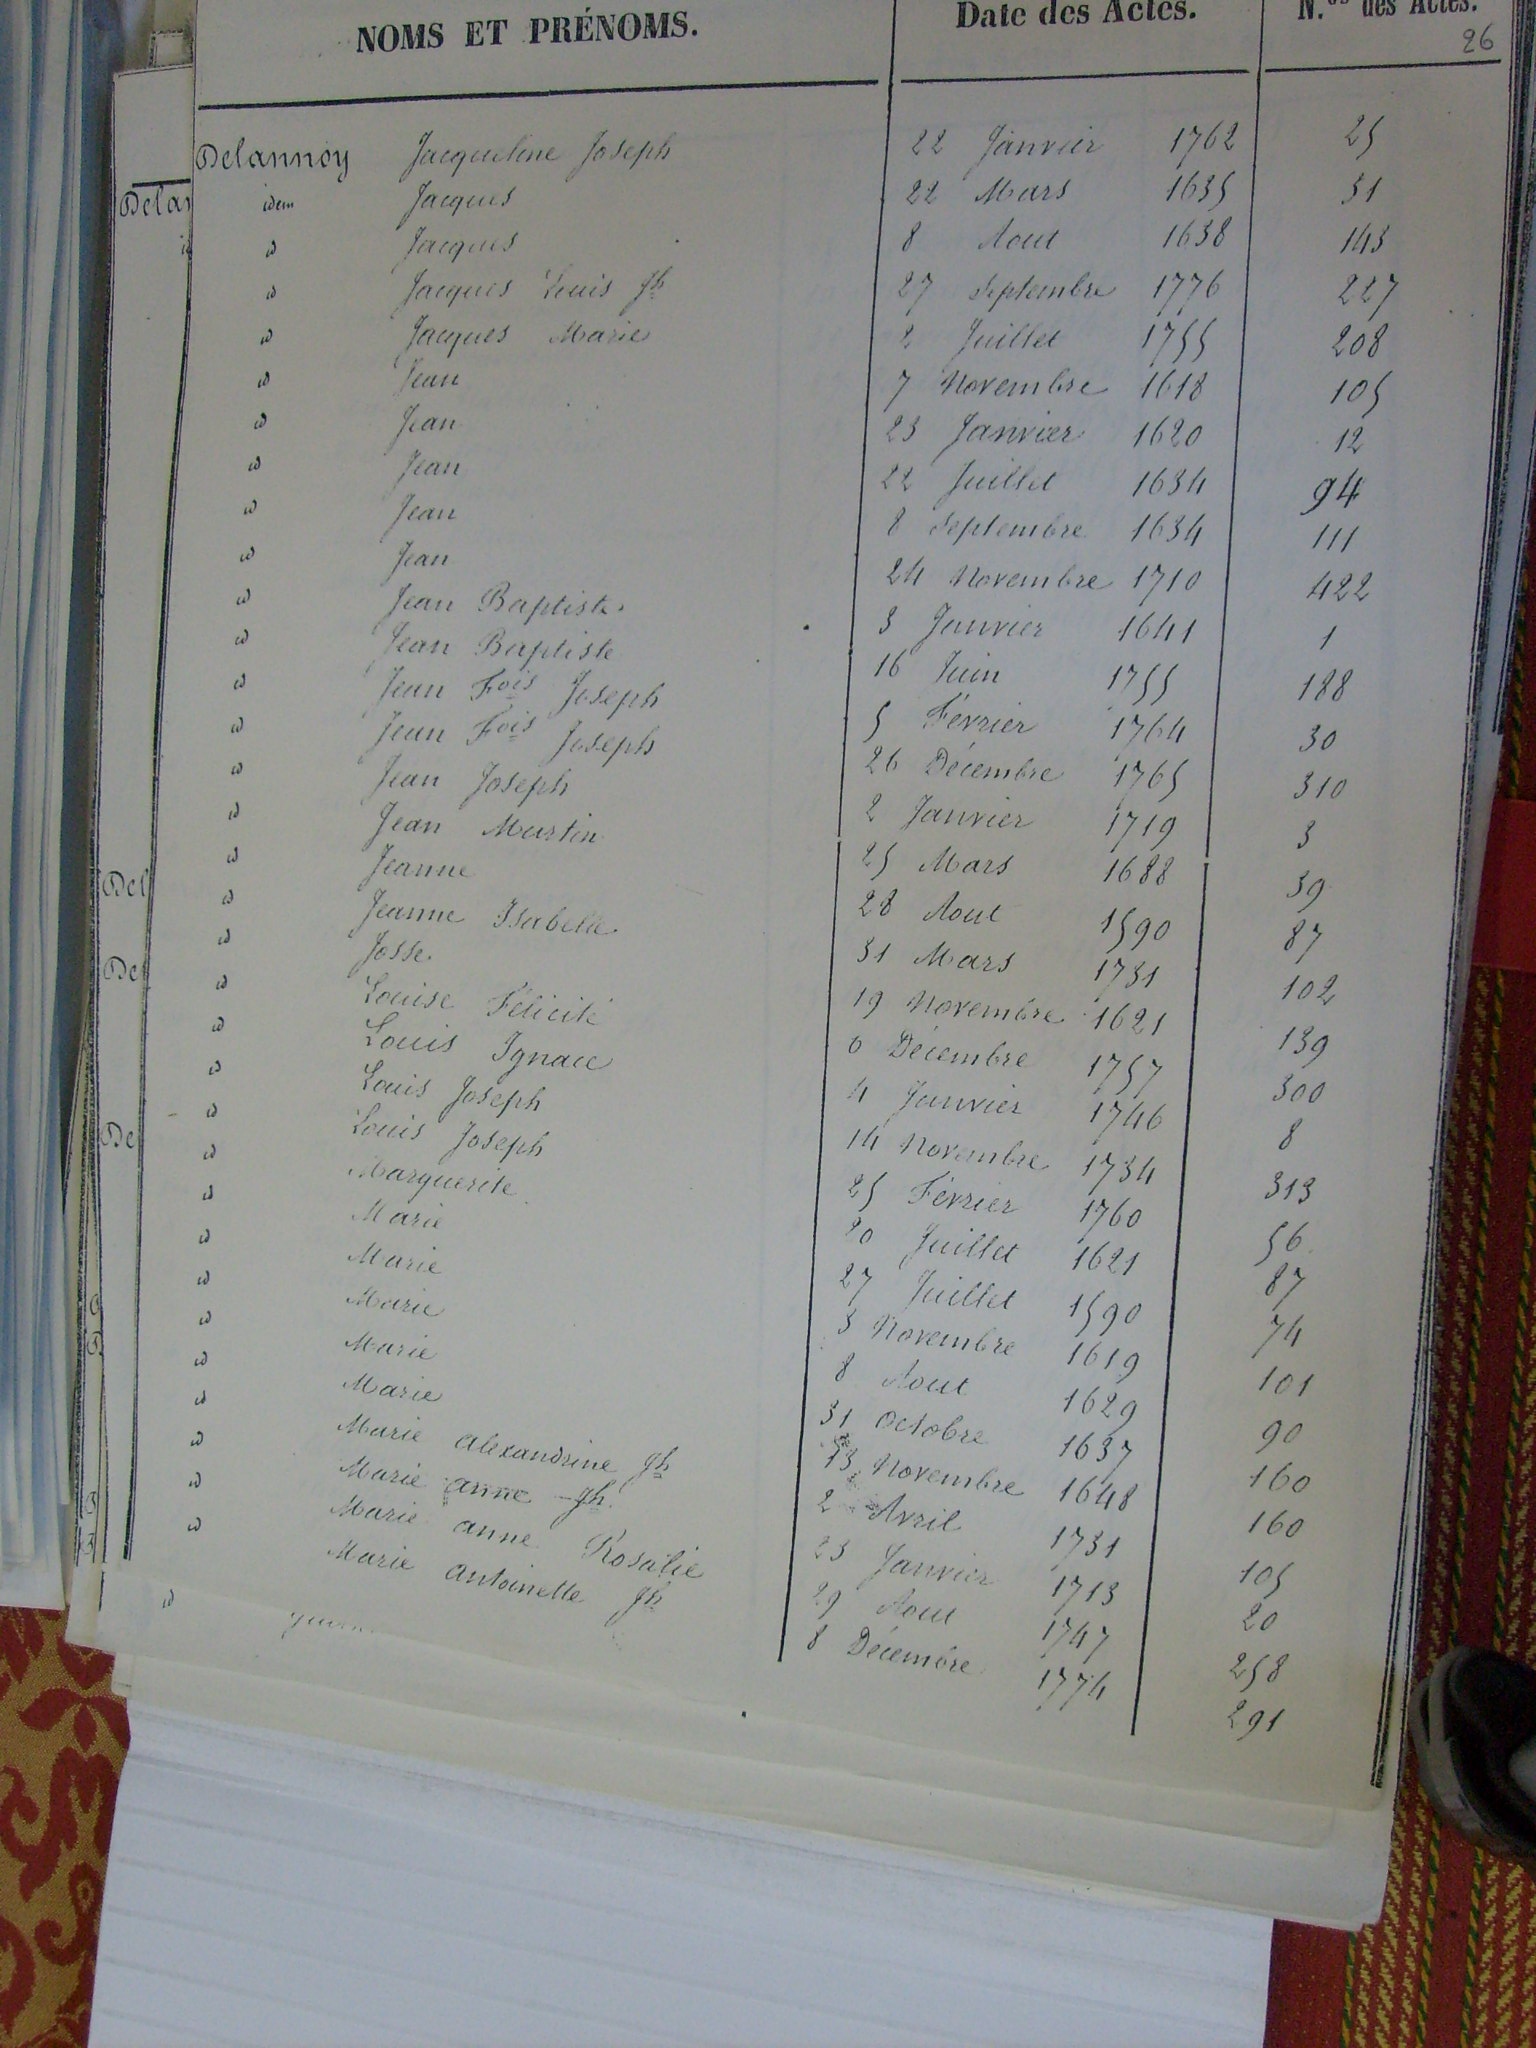 NOMS ET PRÉNOMS. Date des Actes. N.os des Actes.
26
Delannoy Jacqueline Joseph 22 Janvier 1762 25
idem Jacques 22 Mars 1635 31
id Jacques 8 Aout 1638 143
id Jacques Louis Jh 27 Septembre 1776 227
id Jacques Marie 2 Juillet 1755 208
id Jean 7 Novembre 1618 105
id Jean 23 Janvier 1620 12
id Jean 22 Juillet 1634 94
id Jean 8 Septembre 1634 111
id Jean 24 Novembre 1710 422
id Jean Baptiste 3 Janvier 1641 1
id Jean Baptiste 16 Juin 1755 188
id Jean Fois Joseph 5 Février 1764 30
id Jean Fois Joseph 26 Décembre 1765 310
id Jean Joseph 2 Janvier 1719 3
id Jean Martin 25 Mars 1688 39
id Jeanne 28 Aout 1590 87
id Jeanne Isabelle 31 Mars 1731 102
id Josse 19 Novembre 1621 139
id Louise Félicité 6 Décembre 1757 300
id Louis Ignace 4 Janvier 1746 8
id Louis Joseph 14 Novembre 1734 313
id Louis Joseph 25 Février 1760 56
id Marguerite 20 Juillet 1621 87
id Marie 27 Juillet 1590 74
id Marie 3 Novembre 1619 101
id Marie 8 Aout 1629 90
id Marie 31 Octobre 1637 160
id Marie 13 Novembre 1648 160
id Marie alexandrine Jh 2 Avril 1731 105
id Marie anne Jh 23 Janvier 1713 20
id Marie anne Rosalie 29 Aout 1747 258
id Marie antoinette Jh 8 Décembre 1774 291